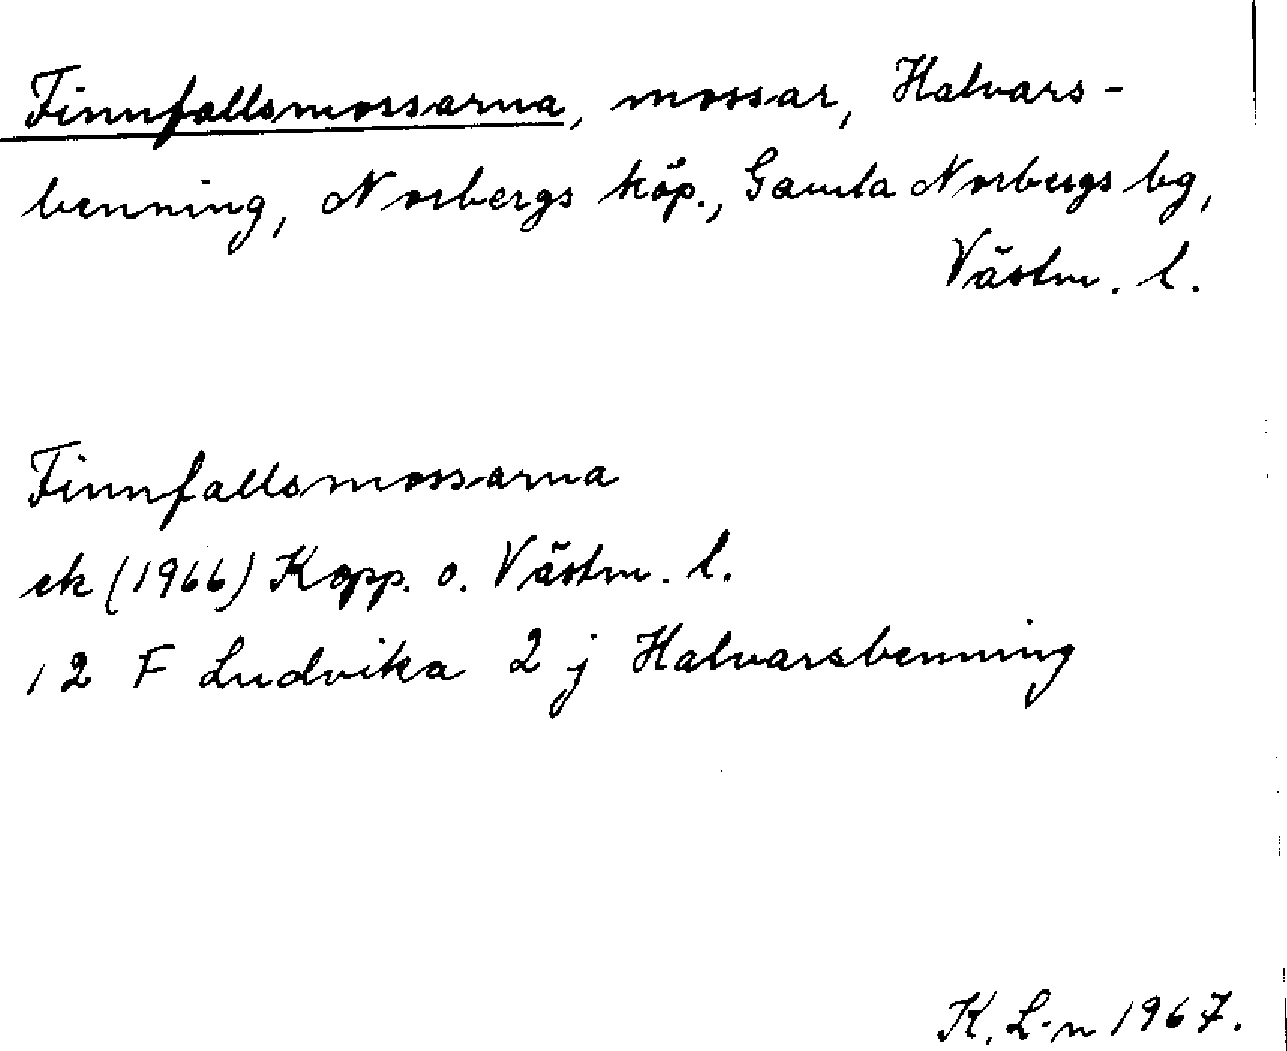 Finnfallsmossarna, mossar, Halvars-
benning, Norbergs köp., Gamla Norbergs bg,
Västm. l.
Finnfallsmossarna
ek (1966) Kopp. o. Västm. l.
12 F Ludvika 2 j Halvarsbenning
K. L-n 1967.